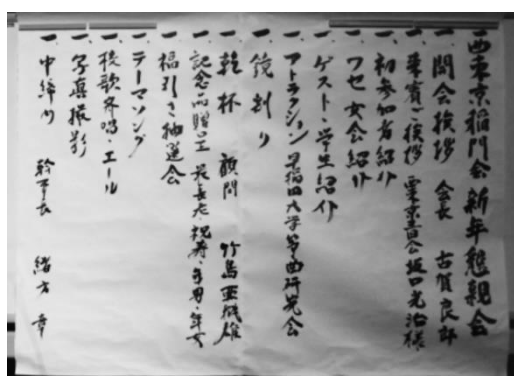 西東京稲門会新年懇親会
一、開会挨拶 会長 古賀良郎
一、来賓ご挨拶 坂口光治様
一、初参加者紹介
一、ワセ女会紹介
一、ゲスト・学生紹介
一、アトラクション 早稲田大学箏曲研究会
一、鏡割り
一、乾杯 顧問 竹島亜機雄
一、記念品贈呈 祝寿・年男・年女
一、福引き抽選会
一、テーマソング
一、校歌斉唱・エール
一、写真撮影
一、中締め 幹事長 緒方章